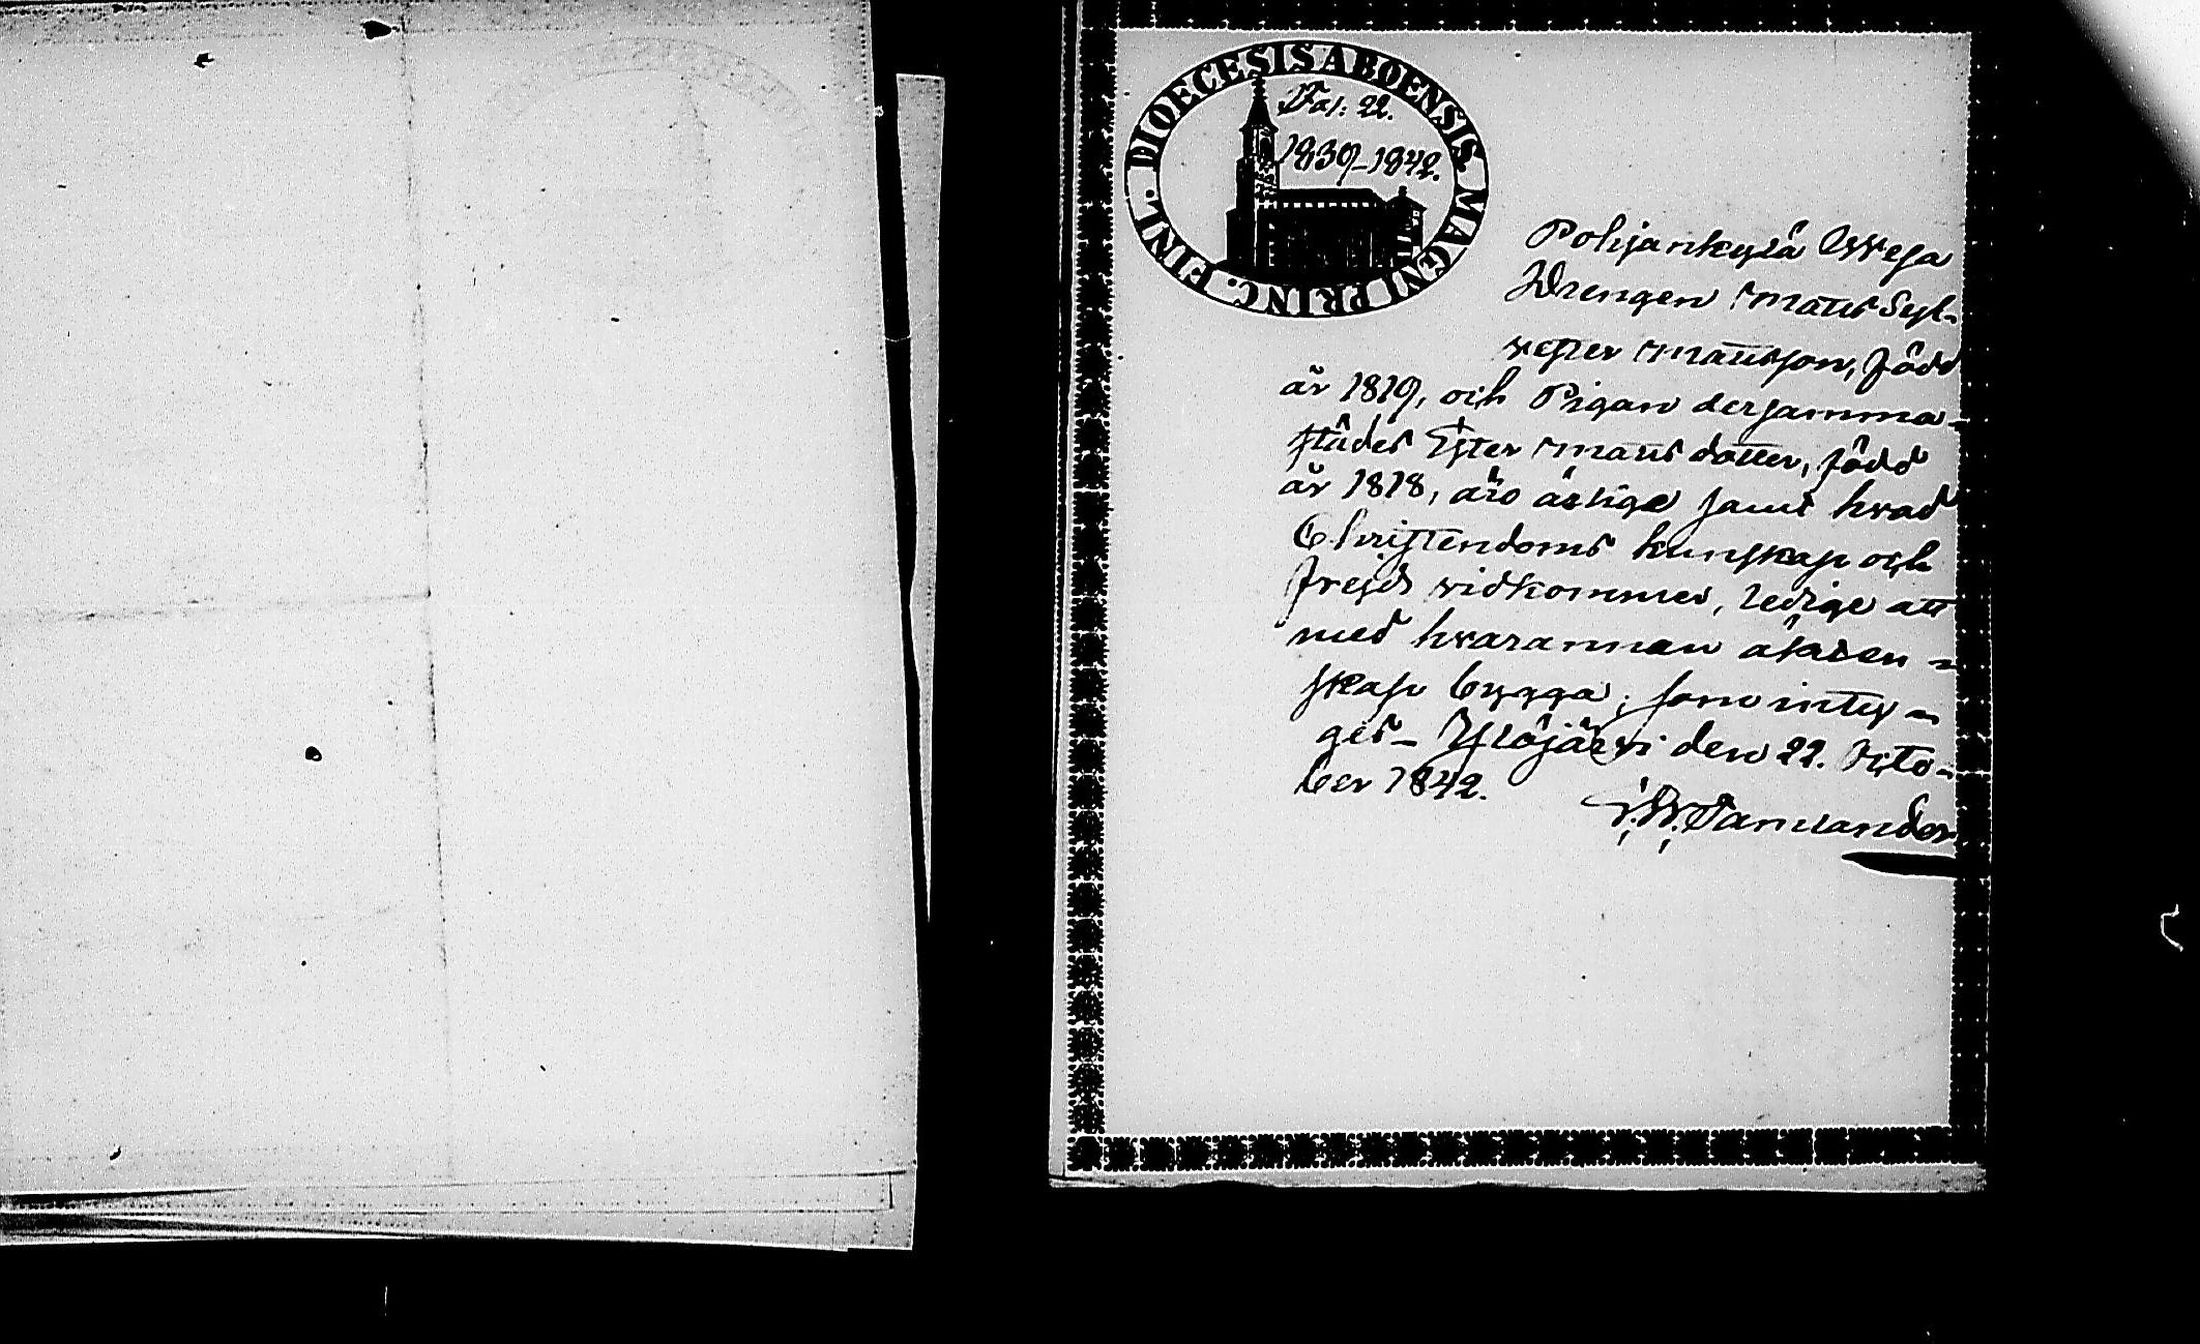 DIOECESIS ABOENSIS MAGNI PRINC. FINL.
Fol: 22.
1839-1842.
Pohjankylä
Drengen Matts Syl-
vester Mattsson, född
år 1819, och Pigan dersamma-
städes Ester Matts dotter, född
år 1818, äro ärlige samt hvad
Christendoms kunskap och
frejd vidkommer, ledige att
med hvarannan äkten-
skap bygga; som inty-
ges_ Ylöjärvi den 22. Octo-
ber 1842.